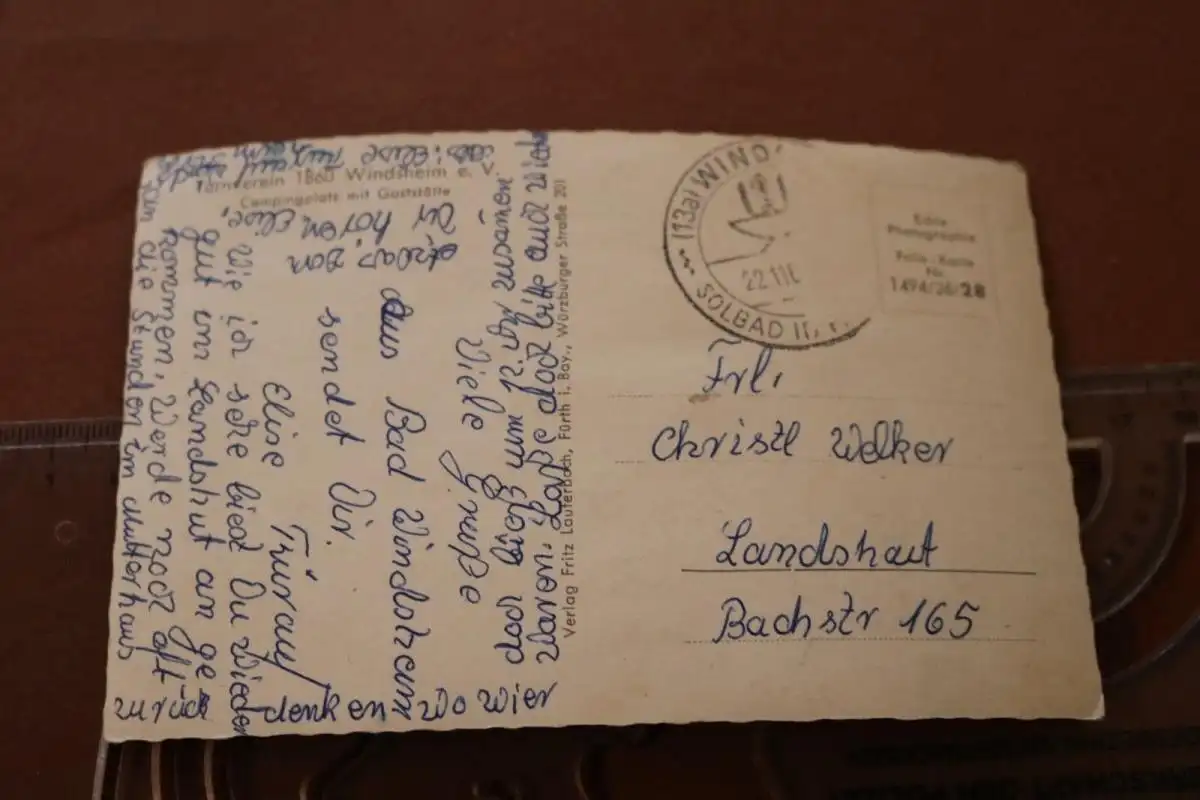 Turnverein 1860 Windsheim e. V.
Campingplatz mit Gaststätte
Viele Grüße
aus Bad Windsheim
sendet Dir
Elise
Elise,
Wie ich sehe bist Du wieder
gut in Landshut an ge
kommen, Werde noch oft
an die Stunden im Mutterhaus
zurück denken wo wier
doch bis um 12 Uhr zusamen
waren. Lasse doch bitte auch wieder
etwas von
Dir hören
Verlag Fritz Lauterbach, Fürth i. Bay., Würzburger Straße 201
(13a) WIND
22.11
SOLBAD
Echte
Photographie
Folie-Karte
Nr.
1494/36/28
Frl.
Christl Welker
Landshut
Bachstr 165